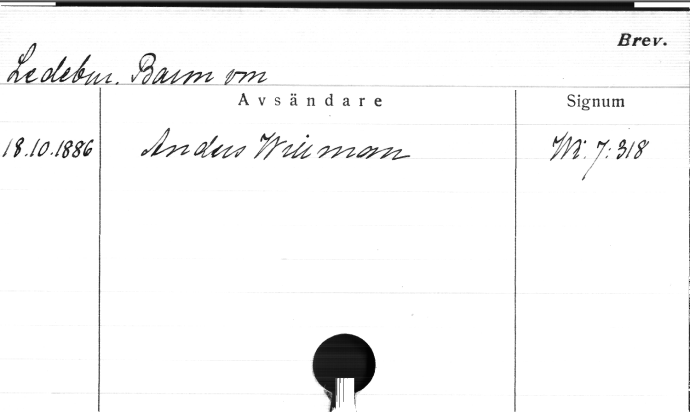 Brev.
Ledebur, Baron von
Avsändare Signum
18.10.1886 Anders Willman Wi. 7:318